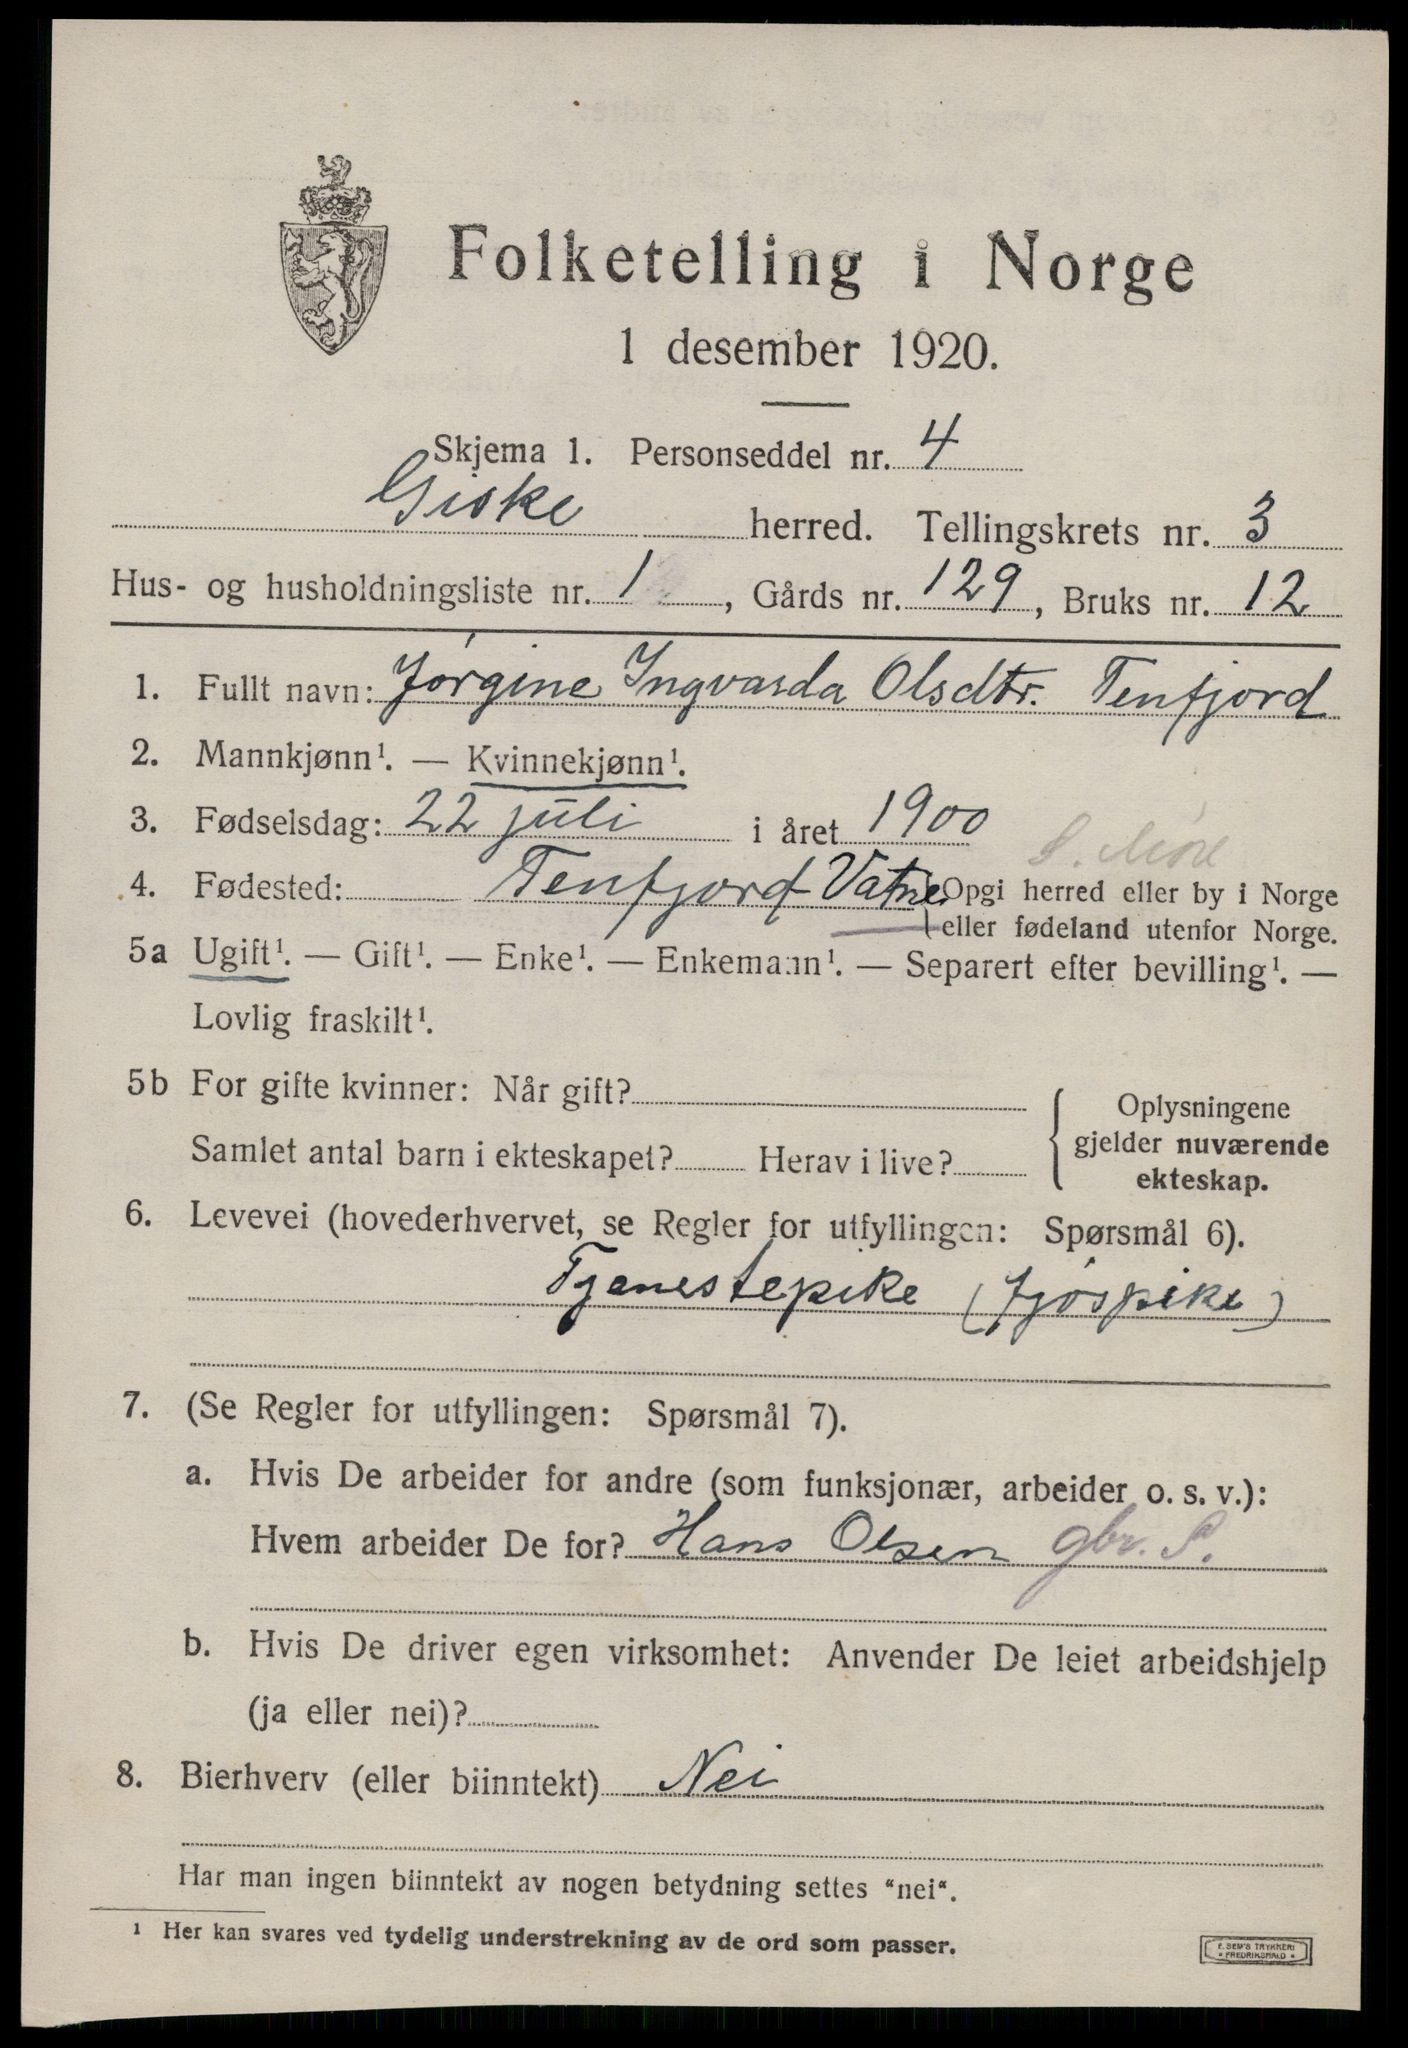 Folketelling i Norge
1 desember 1920.
Skjema 1. Personseddel nr. 4
Giske herred. Tellingskrets nr. 3
Hus- og husholdningsliste nr. 1, Gårds nr. 129, Bruks nr. 12
1. Fullt navn: Jørgine Ingvarda Olsdtr. Tenfjord
2. Mannkjønn¹. — Kvinnekjønn¹.
3. Fødselsdag: 22 juli i året 1900
S. Möre
4. Fødested: Tenfjord Vatne { Opgi herred eller by i Norge
eller fødeland utenfor Norge.
5a Ugift¹. — Gift¹. — Enke¹. — Enkemann¹. — Separert efter bevilling¹. —
Lovlig fraskilt¹.
5b For gifte kvinner: Når gift?
Samlet antal barn i ekteskapet? Herav i live?
Oplysningene
gjelder nuværende
ekteskap.
6. Levevei (hovederhvervet, se Regler for utfyllingen: Spørsmål 6).
Tjenestepike (fjøspike)
7. (Se Regler for utfyllingen: Spørsmål 7).
a. Hvis De arbeider for andre (som funksjonær, arbeider o. s. v.):
Hvem arbeider De for? Hans Olsen gbr. S.
b. Hvis De driver egen virksomhet: Anvender De leiet arbeidshjelp
(ja eller nei)?
8. Bierhverv (eller biinntekt) Nei
Har man ingen biinntekt av nogen betydning settes "nei".
¹ Her kan svares ved tydelig understrekning av de ord som passer.
E. SEM'S TRYKKERI
* FREDRIKSHALD *